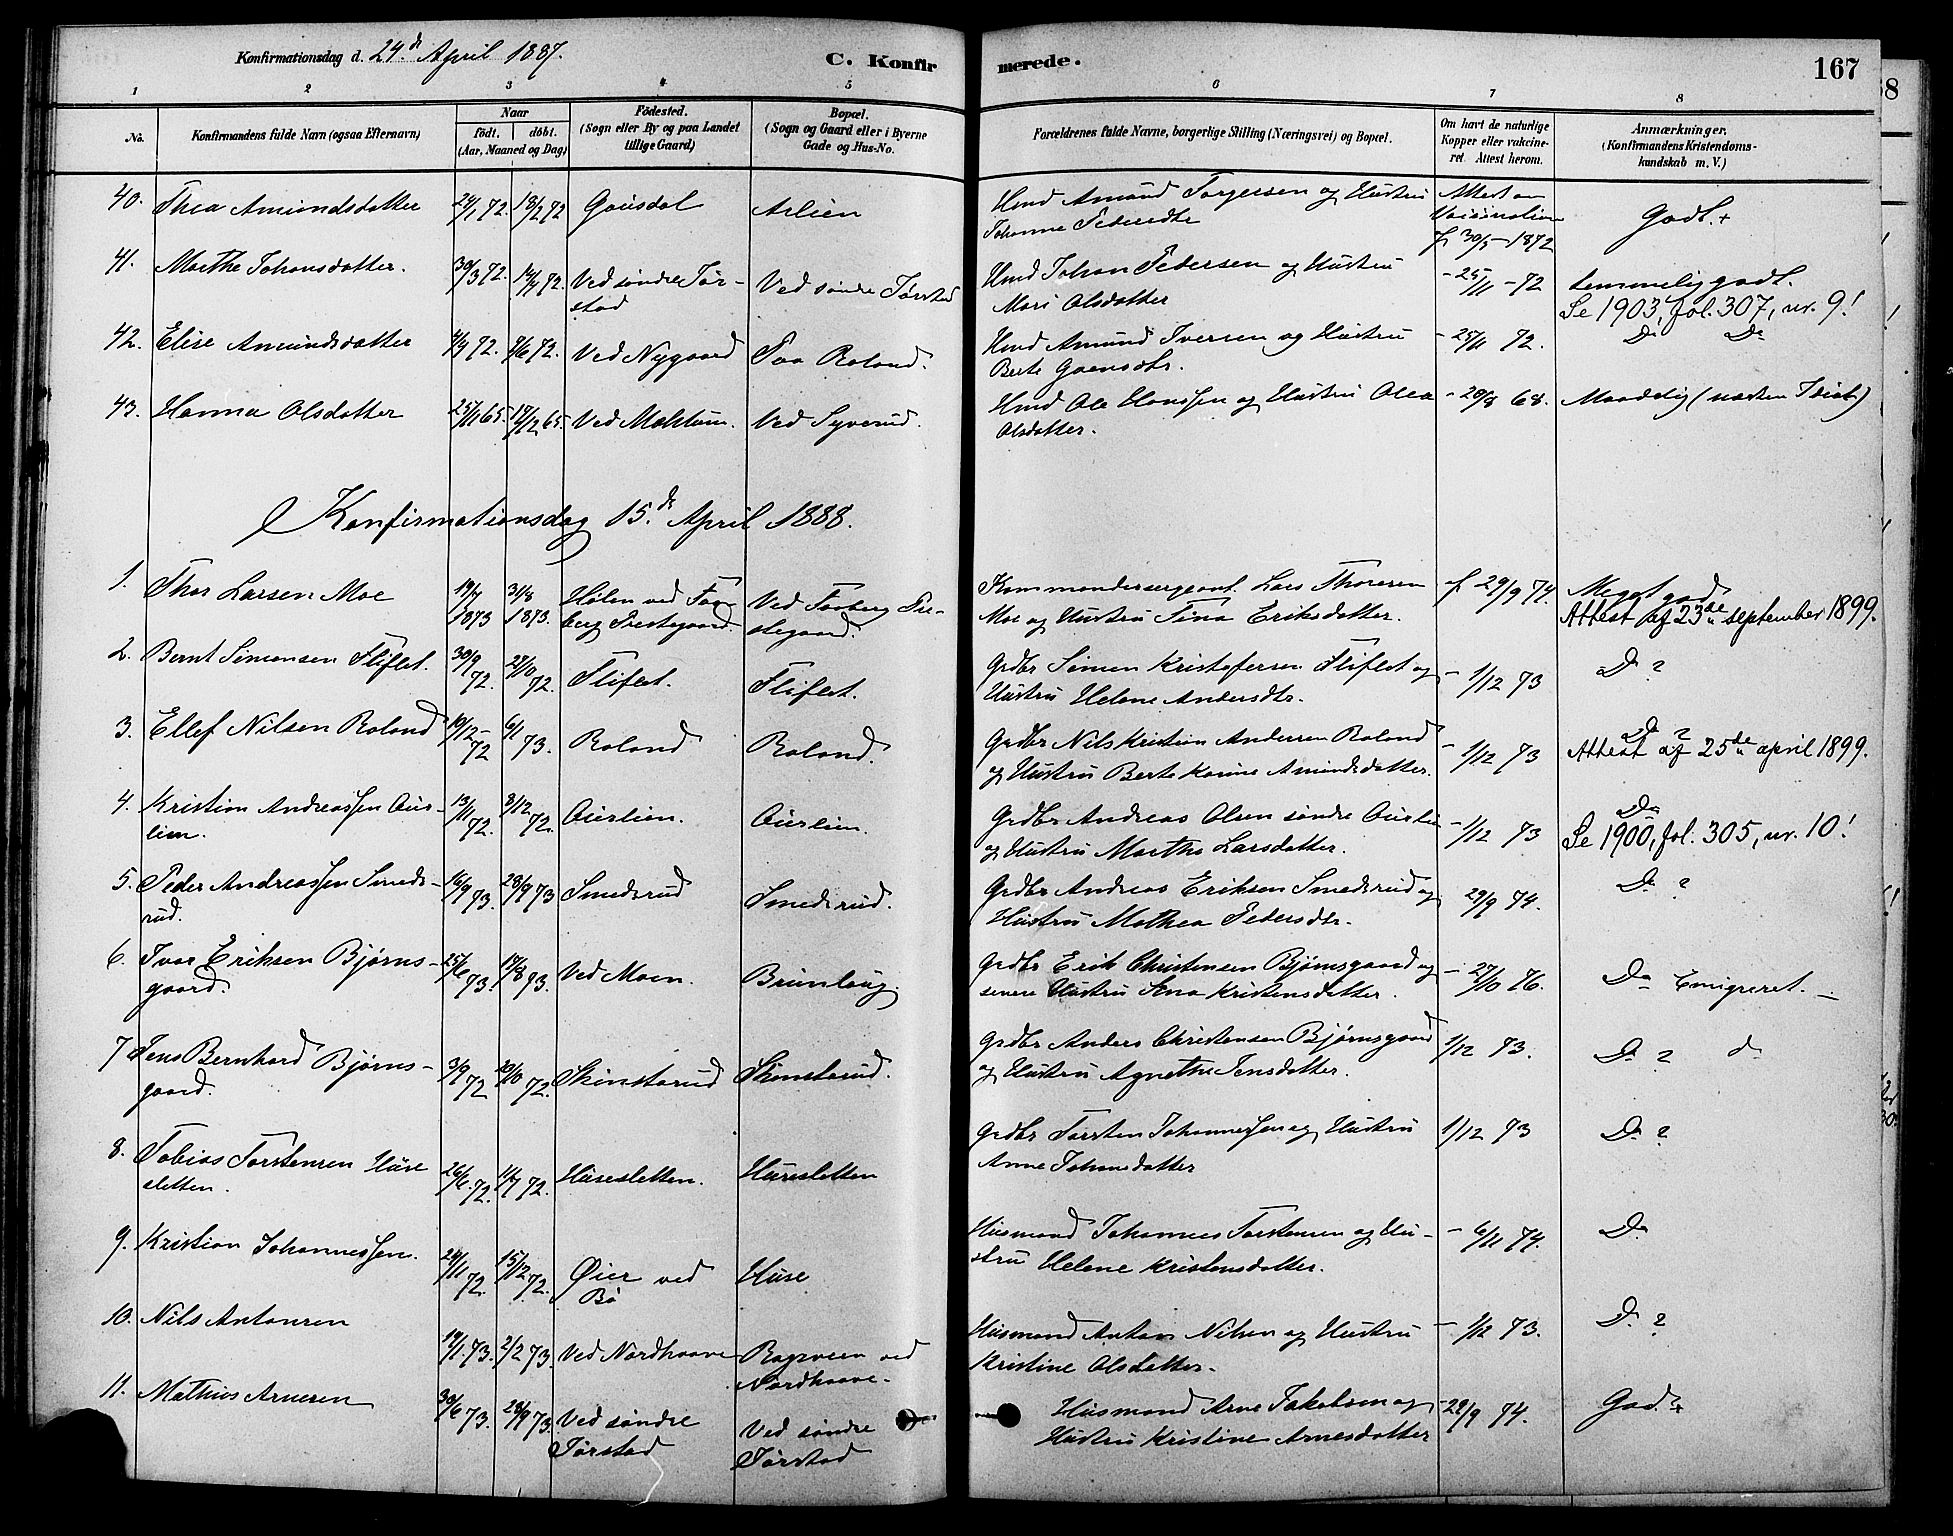 Konfirmationsdag d. 24de April 1887.
C. Konfirmerede.
167
1 2 3 4 5 6 7 8
No.
Konfirmandens fulde Navn (ogsaa Efternavn)
Naar
født. døbt.
(Aar, Maaned og Dag)
Födested.
(Sogn eller By og paa Landet
tillige Gaard)
Bopæl.
(Sogn og Gaard eller i Byerne
Gade og Hus-No.
Forældrenes fulde Navne, borgerlige Stilling (Næringsvei) og Bopæl.
Om havt de naturlige
Kopper eller vakcine-
ret. Attest herom.
Anmærkninger.
(Konfirmandens Kristendoms-
kundskab m. V.)
40. Thea Amundsdatter 24/1 72. 18/2 72 Gausdal Aslien Hmd Amund Torgersen og Hustru Attest om
Johanne Pedersdtr Vaccination
f 30/5 - 1872 Godt. +
41. Marthe Johansdatter. 30/3 72. 14/4 72. Ved søndre Jør-
stad Ved søndre Jørstad Hmd Johan Pedersen og Hustru
Mari Olsdatter - 25/11 - 72 temmelig godt.
Se 1903, fol. 307, nr. 9!
42. Elise Amundsdatter 4/4 72. 9/6 72. Ved Nygaard Paa Roland. Hmd Amund Iversen og Hustru
Berte - 25/11 72. Do Do
43. Hanna Olsdatter 25/11 65. 17/12 65. Ved Mæhlum. Ved Syverud. Hmd Ole Hanssen og Hustru Olea
Olsdatter. - 20/8 68. Maadelig (næsten Idiot)
Konfirmationsdag 15de April 1888.
1. Thor Larsen Moe 19/7 1873 31/8 1873. Hølen ved Faa-
berg Prestegaard. Ved Faaberg Pre-
stegaard. Kommandersergeant. Lars Thoresen
Moe og Hustru Tina Eriksdatter. f 29/9 74. Meget god
Attest af 23de september 1899.
2. Bernt Simensen Fliflet. 30/9 72. 27/10 72. Fliflet. Fliflet. Grdbr Simen Kristofersen Fliflet og
Hustru Helene Andersdtr. - 1/12 73 Do ?
3. Ellef Nilsen Roland 10/12 72 6/1 73. Roland Roland. Grdbr Nils Kristian Andersen Roland
og Hustru Berte Karine Amundsdatter. - 1/12 73 Do ?
Attest af 25de april 1899.
4. Kristian Andreassen Aur-
lien. 13/11 72. 8/12 72. Aurlien. Aurlien. Grdbr Andreas Olsen søndre Aurlien
og Hustru Marthe Larsdatter. - 1/12 73 Do
Se 1900, fol. 305, nr. 10!
5. Peder Andreassen Smeds-
rud. 16/9 73. 28/9 73 Smedsrud Smedsrud. Grdbr Andreas Eriksen Smedsrud og
Hustru Mathea Pedersdtr. 29/9 74. Do ?
6. Ivar Eriksen Bjørns-
gaard. 25/6 73. 17/8 73. Ved Moen. Brunlaug. Grdbr Erik Christensen Bjørnsgaard og
senere Hustru Sina Kristensdatter. - 27/10 76. Do Emigreret. -
7 Jens Bernhard Bjørns-
gaard. 3/9 72 20/10 72. Skinstarud Skinstarud. Grdbr Anders Christensen Bjørnsgaard
og Hustru Agnethe Jensdatter. 1/12 73. Do ? do
8. Tobias Torstensen Huse
sletten. 26/6 72. 14/7 72. Husesletten. Husesletten Grdbr Torsten Johannessen og Hustru
Anne Johansdatter 1/12 73 Do ?
9. Kristian Johannessen. 24/11 72. 15/12 72. Øier ved
Bø Huse Husmand Johannes Torstensen og Hu-
stru Helene Kristensdatter. - 6/11 74. Do
10. Nils Antonsen 19/1 73. 2/2 73. Ved Nordhaave ved
Nordhaave. Husmand Anton Nilsen og Hustru
Kristine Olsdatter. - 1/12 73. Do ?
11. Mathias Arnesen 30/6 73. 28/9 73. Ved søndre
Jørstad Ved søndre
Jørstad Husmand Arne Jakobsen og
Hustru Kristine Arnesdatter - 29/9 74. God. +